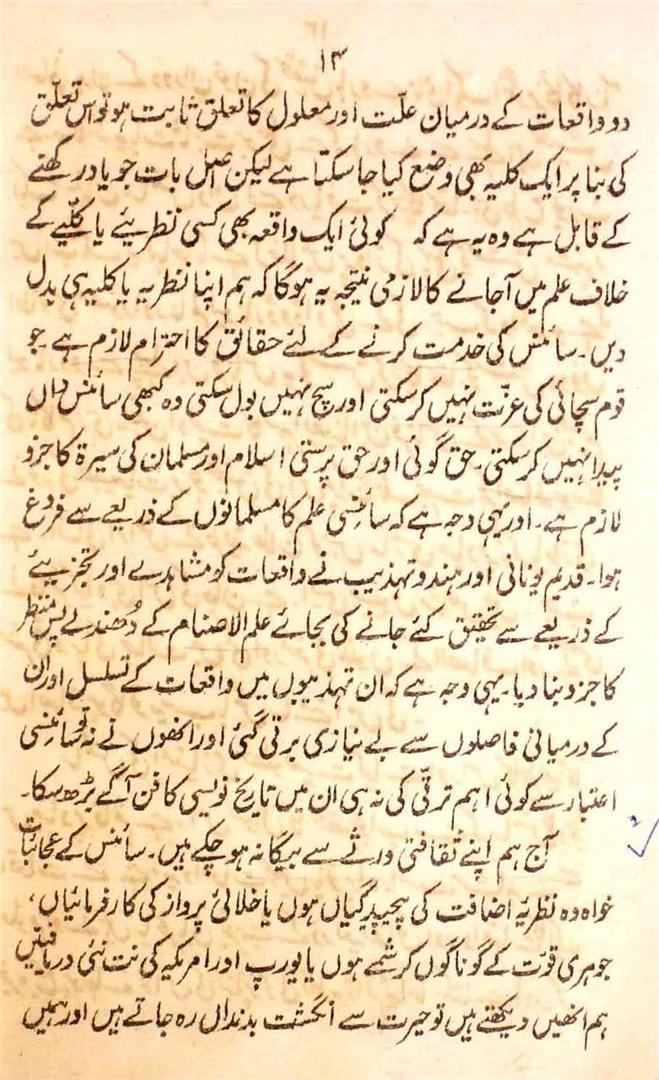 ۱۳
دو واقعات کے درمیان علّت اور معلول کا تعلق ثابت ہو تو اس تعلّق
کی بنا پر ایک کلیہ بھی وضع کیا جا سکتا ہے لیکن اصل بات جو یاد رکھنے
کے قابل ہے وہ یہ ہے کہ کوئی ایک واقعہ بھی کسی نظریئے یا کلّیے کے
خلاف علم میں آجانے کا لازمی نتیجہ یہ ہوگا کہ ہم اپنا نظریہ یا کلیہ ہی بدل
دیں۔ سائنس کی خدمت کرنے کے لئے حقائق کا احترام لازم ہے جو
قوم سچائی کی عزّت نہیں کر سکتی اور سچ نہیں بول سکتی وہ کبھی سائنس داں
پیدا نہیں کر سکتی۔ حق گوئی اور حق پرستی اسلام اور مسلمان کی سیرۃ کا جزو
لازم ہے۔ اور یہی وجہ ہے کہ سائنسی علم کا مسلمانوں کے ذریعے سے فروغ
ہوا۔ قدیم یونانی اور ہندو تہذیب نے واقعات کو مشاہدے اور تجزیئے
کے ذریعے سے تحقیق کئے جانے کی بجائے علم الاصنام کے دُھندلے پس منظر
کا جزو بنا دیا۔ یہی وجہ ہے کہ ان تہذیبوں میں واقعات کے تسلسل اور ان
کے درمیانی فاصلوں سے بے نیازی برتی گئی اور انھوں نے نہ تو سائنسی
اعتبار سے کوئی اہم ترقّی کی نہ ہی ان میں تاریخ نویسی کا فن آگے بڑھ سکا۔
آج ہم اپنے ثقافتی ورثے سے بیگانہ ہو چکے ہیں۔ سائنس کے عجائبات
خواہ وہ نظریہ اضافت کی پیچیدگیاں ہوں یا خلائی پرواز کی کارفرمائیاں،
جوہری قوّت کے گوناگوں کرشمے ہوں یا یورپ اور امریکہ کی نت نئی دریافتیں
ہم انھیں دیکھتے ہیں تو حیرت سے انگشت بدنداں رہ جاتے ہیں اور ہمیں